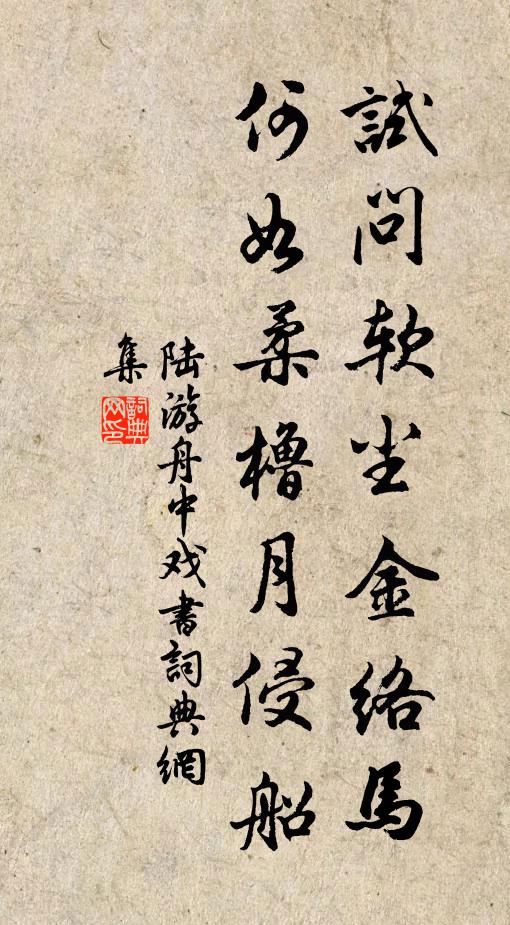 試問软尘金络馬
何如柔櫓月侵船
陆游舟中戏書詞典網
集
詞典
网印